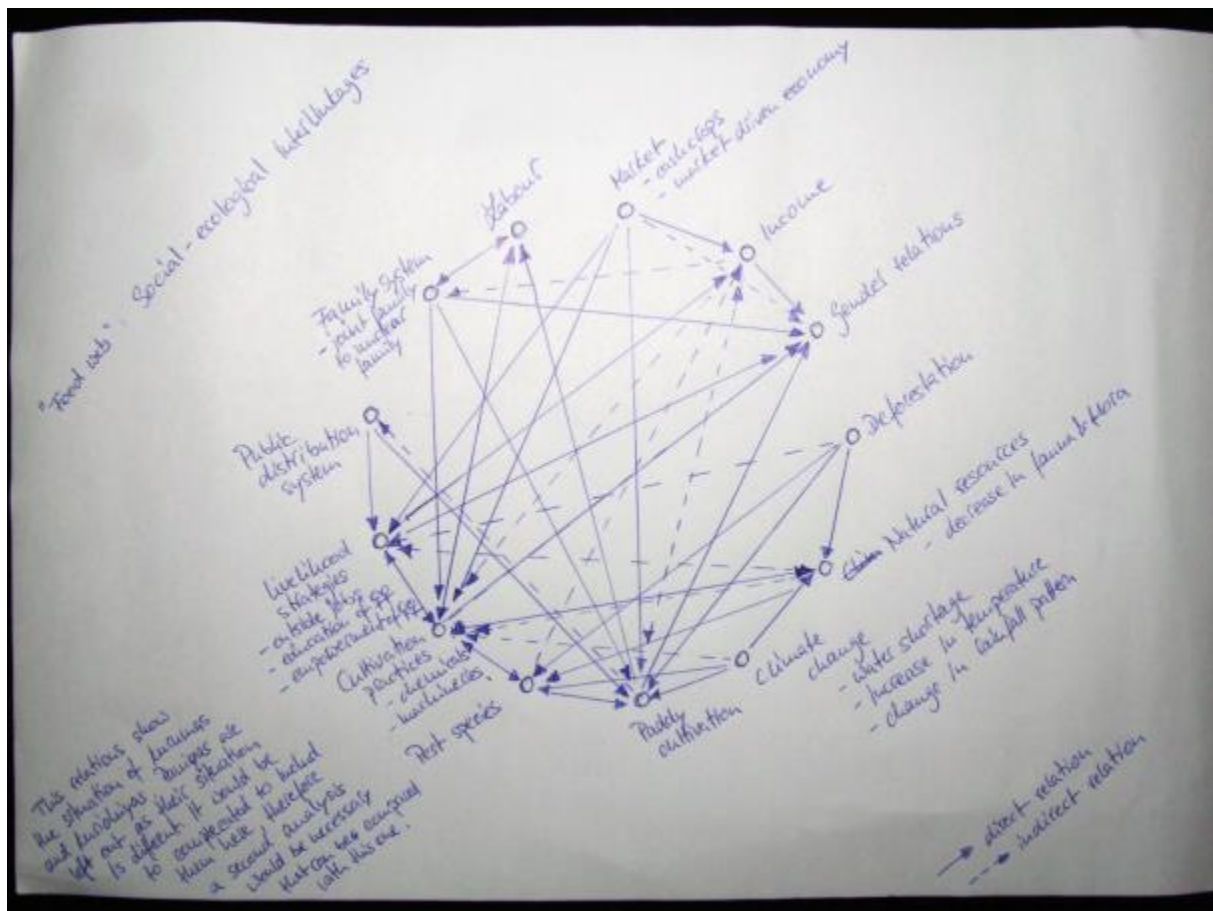 "Food web": Social-ecological Interlinkages
Labour
Market
- cashcrops
- market driven economy
Income
Gender relations
Family system
- joint family
to nuclear
family
Deforestation
Public
distribution
system
Natural resources
- decrease in fauna & flora
Livelihood
strategies
- outside jobs
- education of pp
- empowerment of pp
Cultivation
practices
- chemicals
- machineries
Pest species
Paddy
cultivation
Climate
change
- water shortage
- Increase in temperature
- change in rainfall pattern
This relations show
the situation of
and
left out as their situation
is diferent. It would be
to complicated to includ
them here therefore
a second analysis
would be necessary
that can be compared
with this one.
direct relation
indirect relation